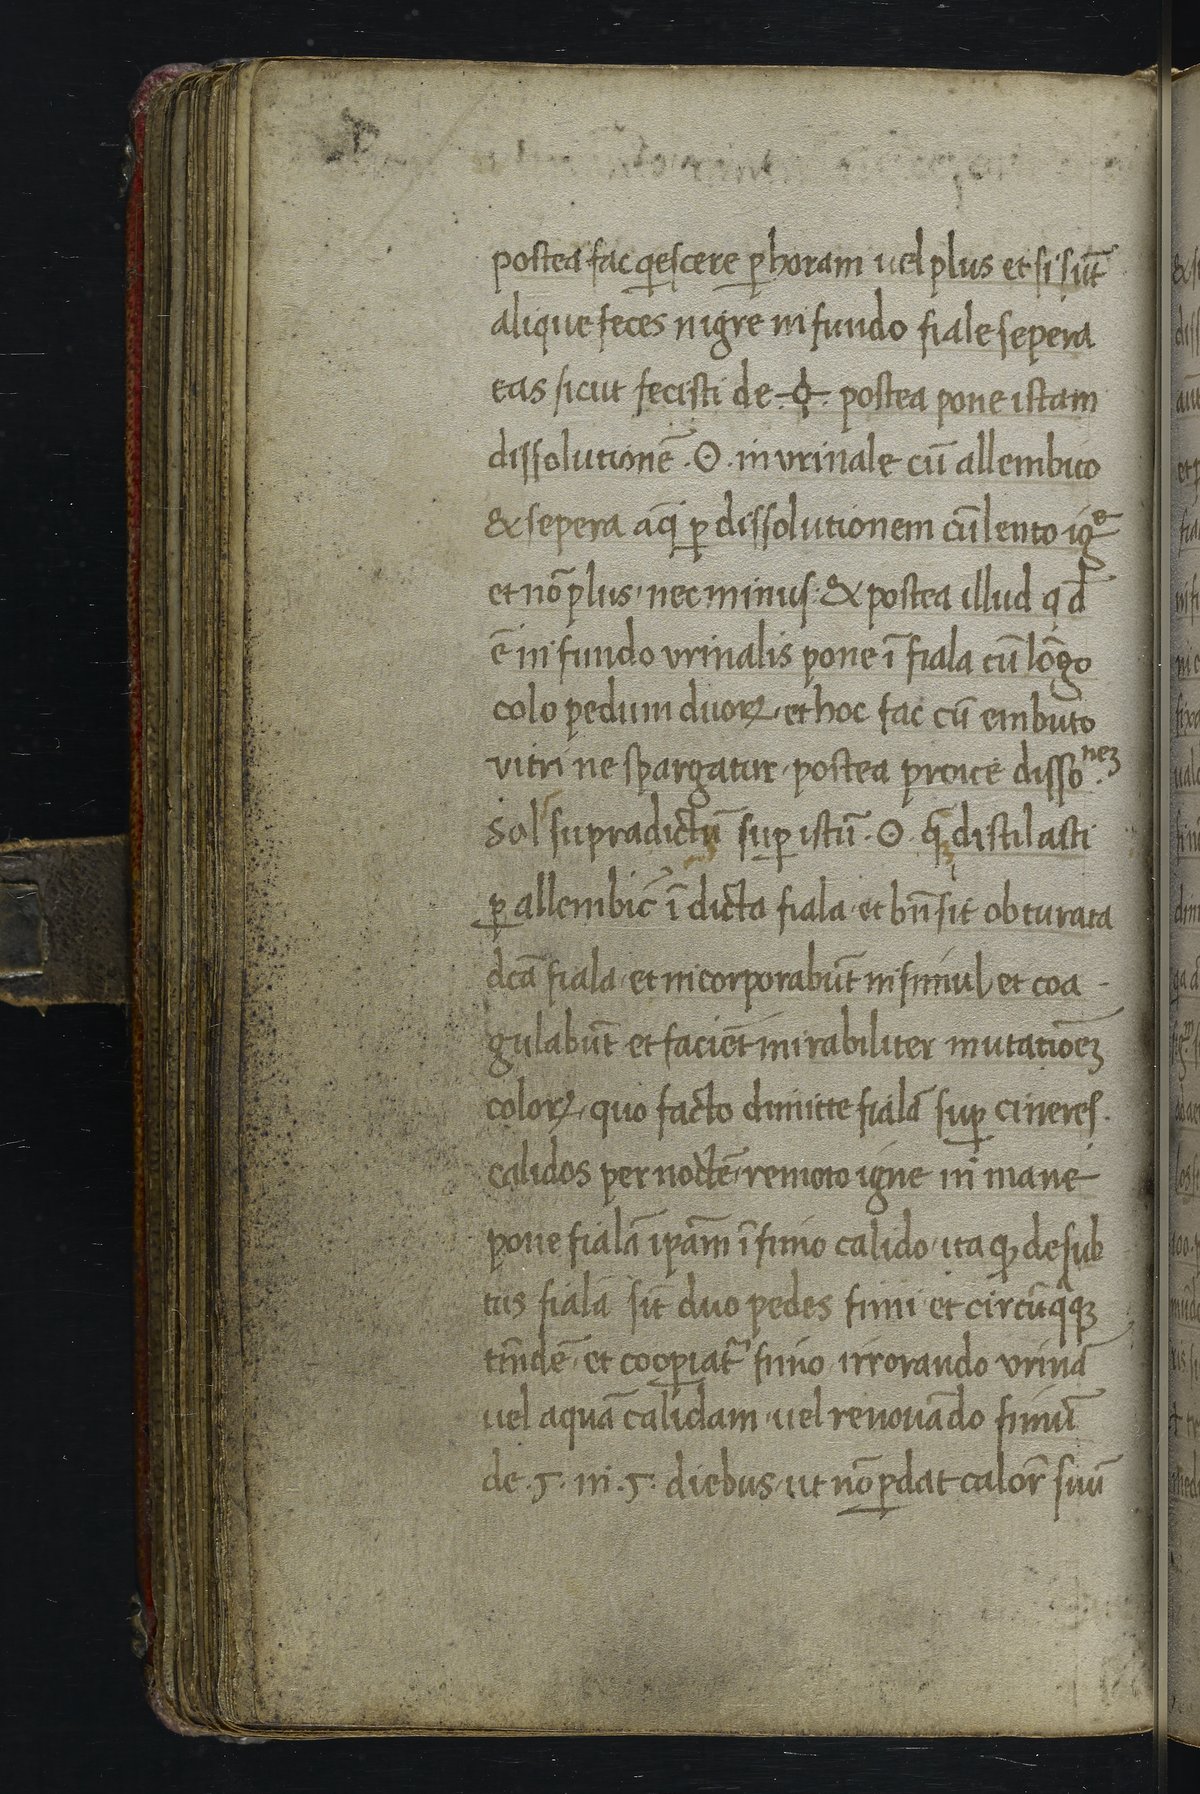 postea fac qescere ꝑ horam uel plus et si sūt
alique feces nigre in fundo fiale sepera
eas sicut fecisti de postea pone istam
dissolutionē .☉. in vrinale cū allembico
& sepera aq̄ ꝑ dissolutionem cū lento igᵉ
et nō plus, nec minus. & postea illud qđ
ē in fundo vrinalis pone ī fiala cū lōgo
colo pedum duoꝝ, et hoc fac cū embuto
vitri ne spargatur, postea proice dissoⁿᵉᶻ.
Sol' supradictū suꝑ istū .☉. distilasti
ꝑ allembic̄ ī dicta fiala, et bn̄ sit obturata
dcā fiala, et incorporabūt insimul, et coa-
gulabūt et faciēt mirabiliter mutatiōeꝫ
coloꝝ, quo facto dimitte fialā suꝑ cineres.
calidos per noctē, remoto igne in mane
pone fialā ip̄am ī fimo calido, ita ꝙ de sub
tus fialā sīt duo pedes fimi et circūq̄qꝫ
tīndē, et cooꝑiat᷑ fimo irrorando vrinā
uel aquā calidam, uel renouādo fimū
de .5. in .5. diebus, ut nō ꝑdat calorē suū